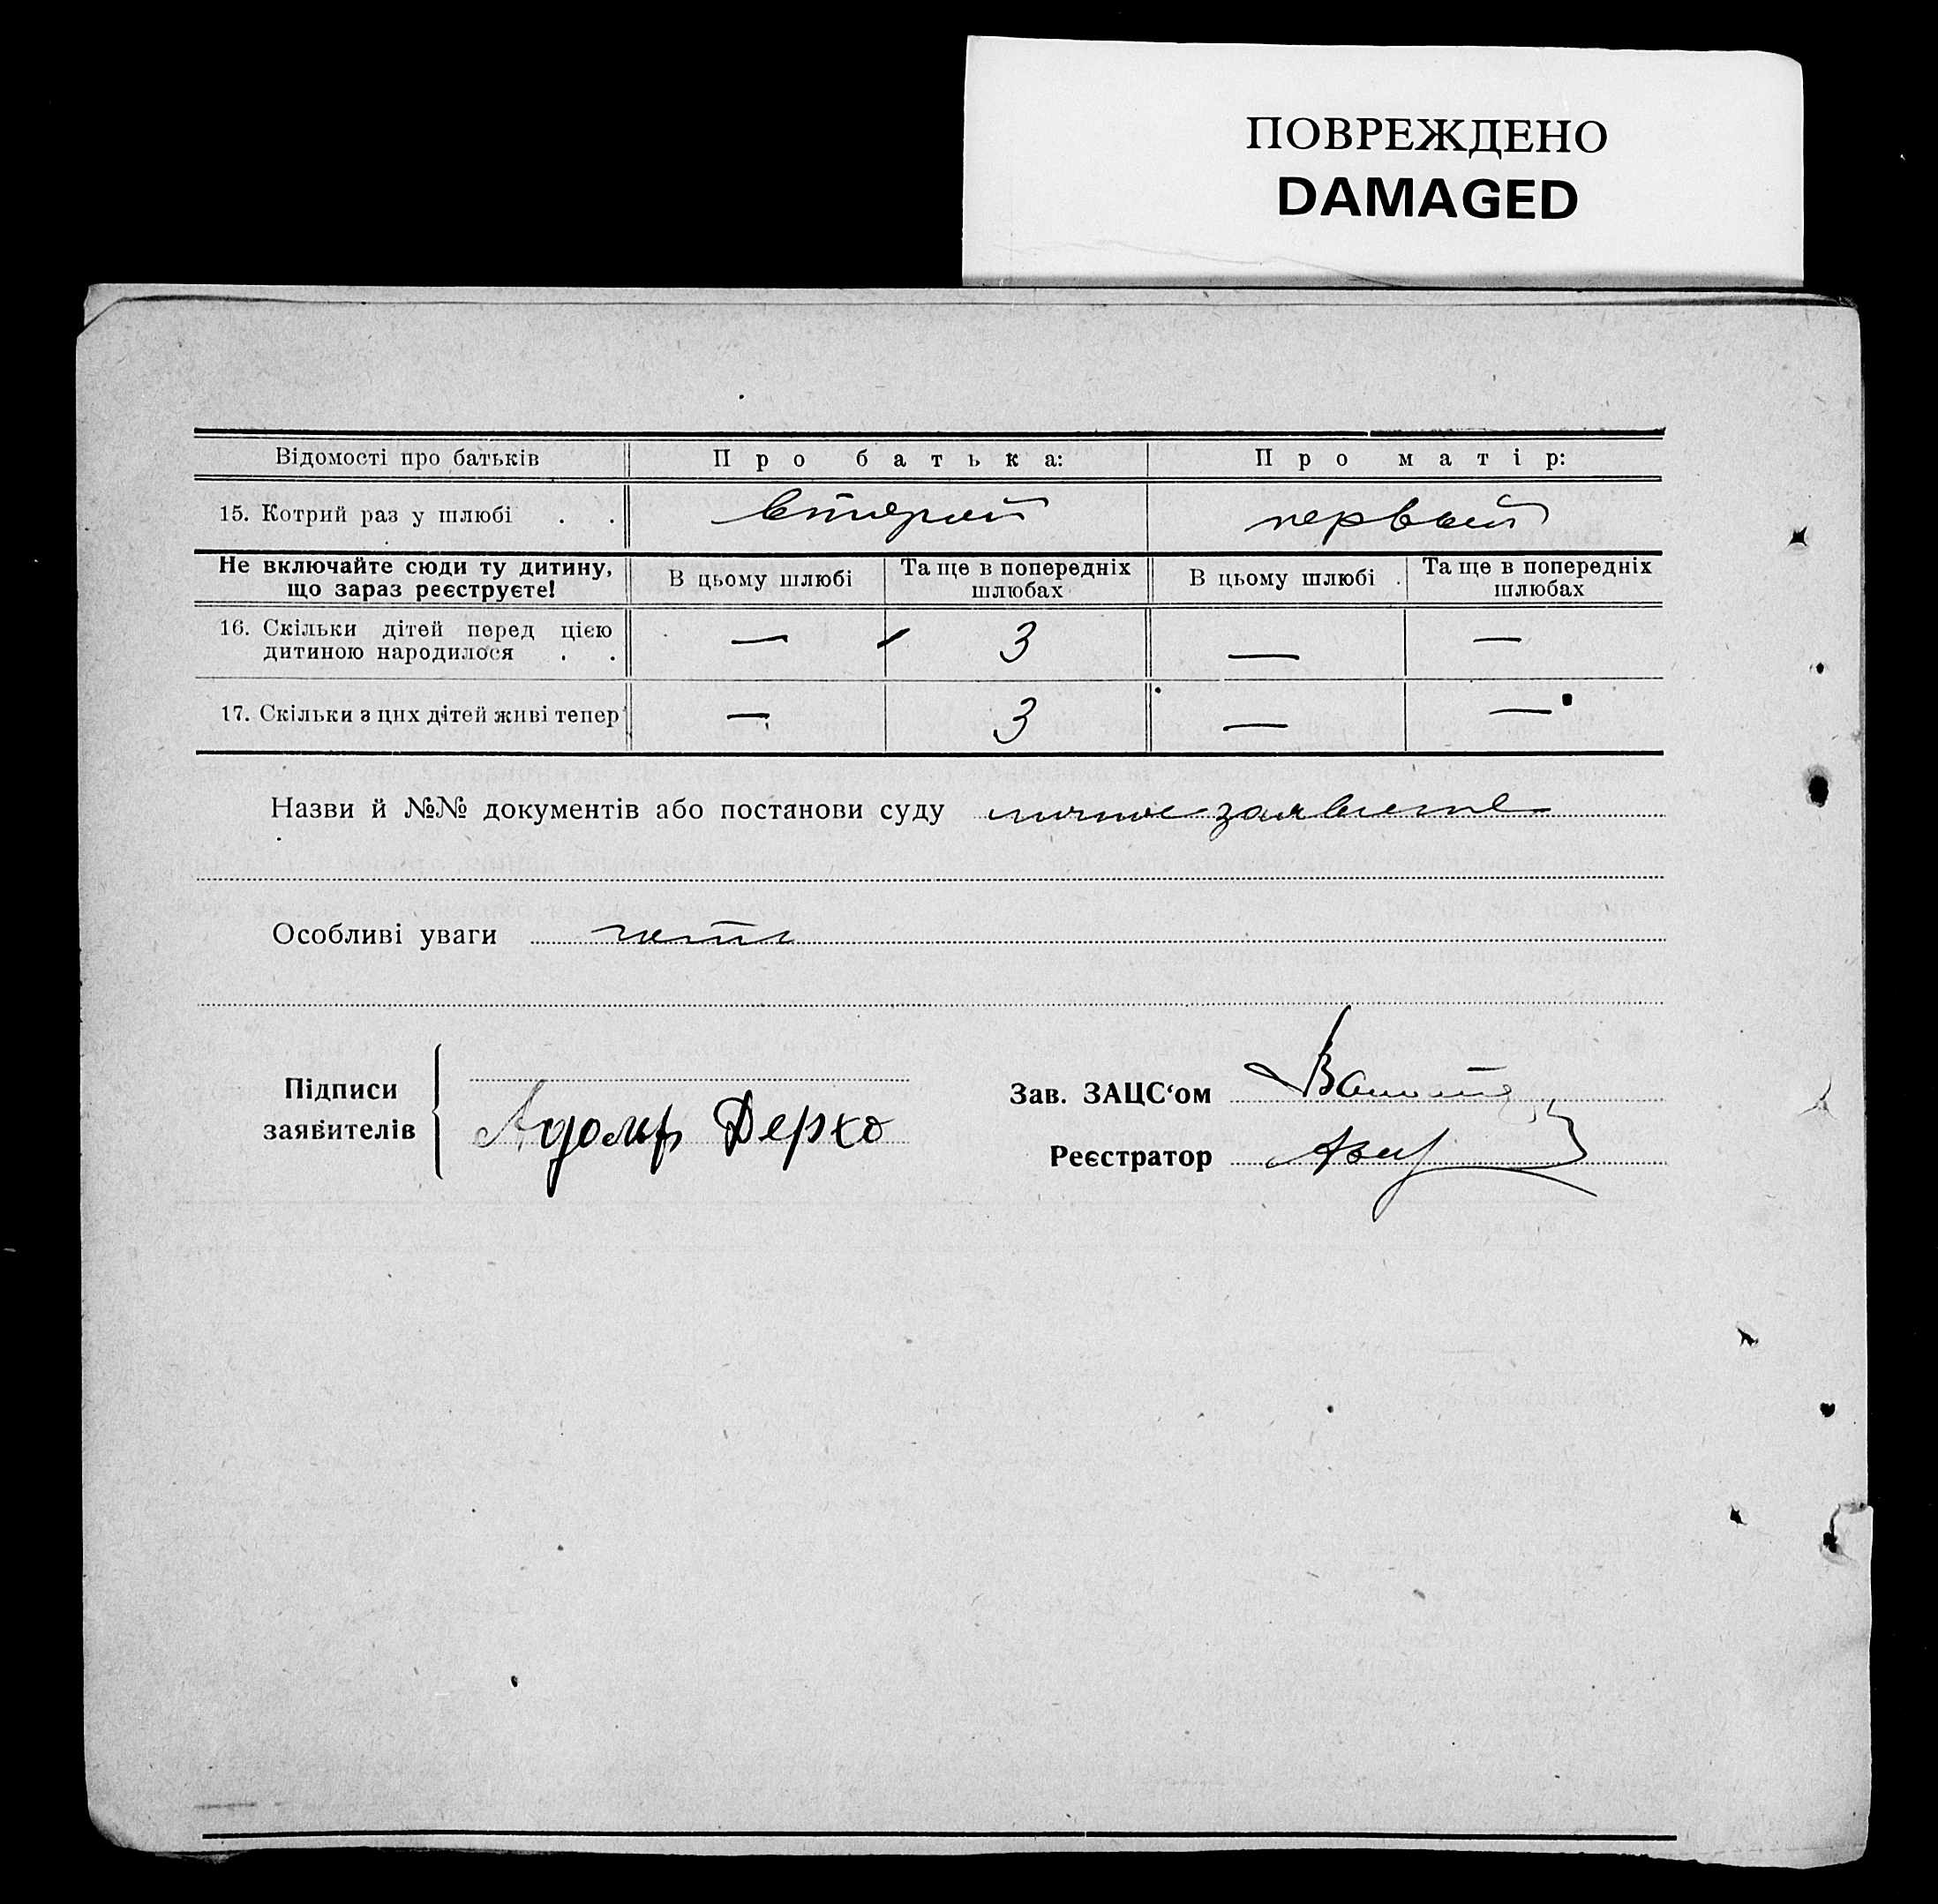 ПОВРЕЖДЕНО
DAMAGED
Відомості про батьків Про батька: Про матір:
15. Котрий раз у шлюбі . . второй первый
Не включайте сюди ту дитину, що зараз реєструєте! В цьому шлюбі Та ще в попередніх шлюбах В цьому шлюбі Та ще в попередніх шлюбах
16. Скільки дітей перед цією дитиною народилося . . — 3 — —
17. Скільки з цих дітей живі тепер — 3 — —
Назви й №№ документів або постанови суду личное заявление
Особливі уваги
Підписи заявителів Адольф Дерхо
Зав. ЗАЦС‘ом
Реєстратор